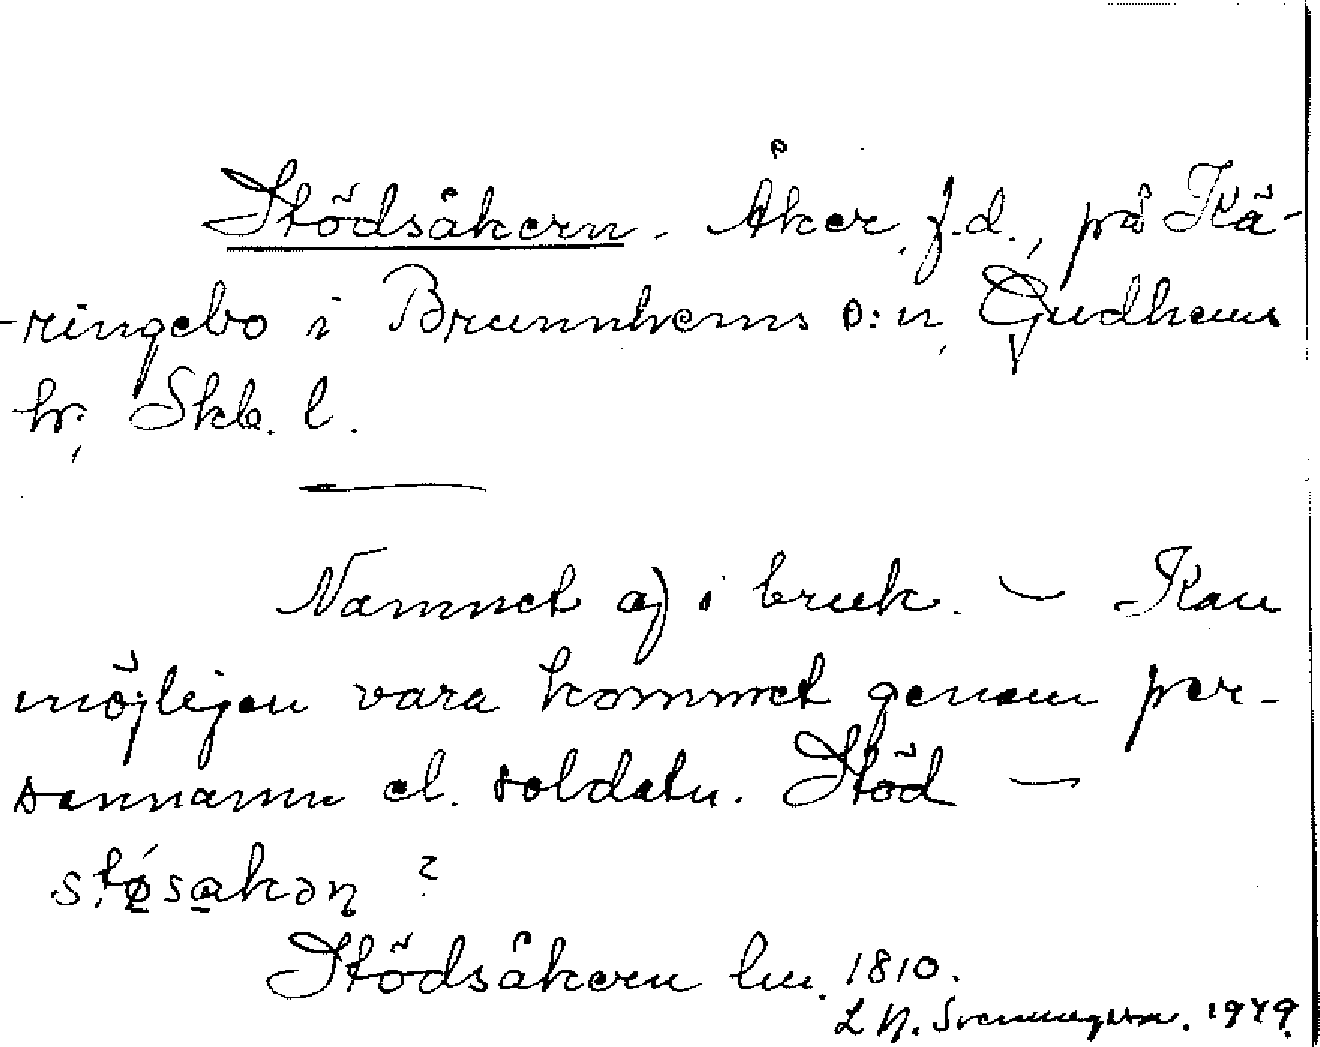 Stödsåkern. Åker, f.d., på Kä-
-ringebo i Brunnhems s:n, Gudhems
hr, Skb. l.
Namnet ej i bruk. — Kan
möjligen vara kommet genom per-
sonnamn el. soldatn. Stöd —
stǿsakəɳ ?
Stödsåkern lm. 1810.
1949.